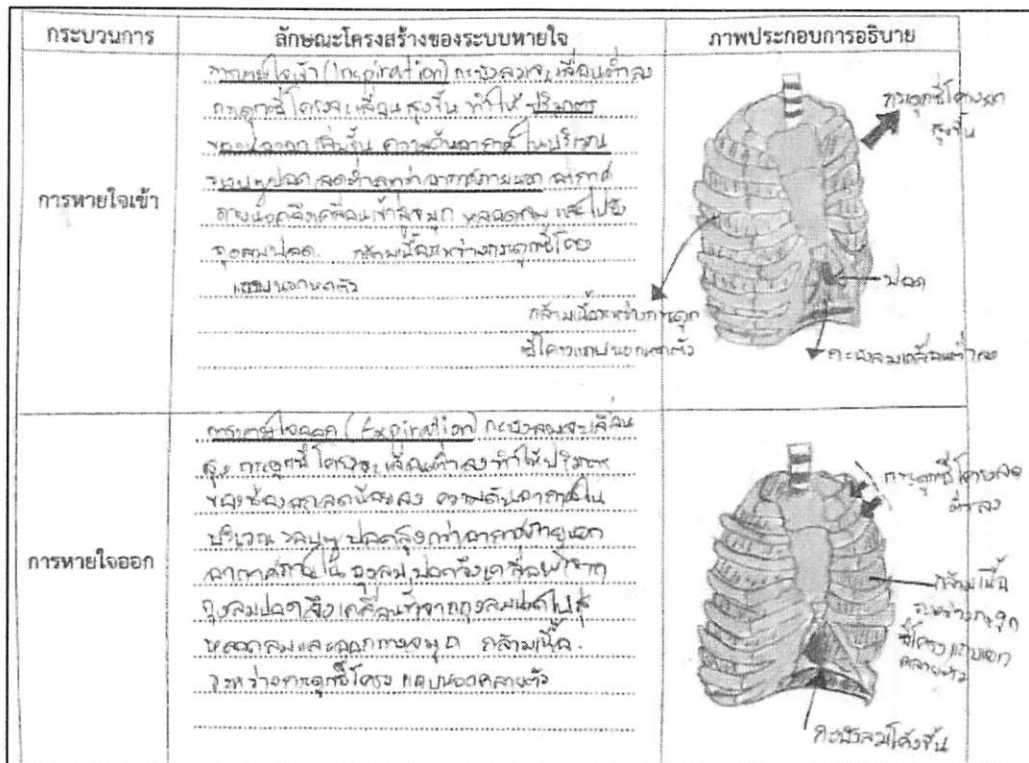 กระบวนการ ลักษณะโครงสร้างของระบบหายใจ ภาพประกอบการอธิบาย
การหายใจเข้า
การหายใจเข้า (Inspiration) กะบังลมจะเลื่อนต่ำลง
กระดูกซี่โครงจะเลื่อนสูงขึ้น ทำให้ ปริมาตร
ของช่องอกเพิ่มขึ้น ความดันอากาศในบริเวณ
รอบๆปอดลดต่ำลงกว่าอากาศภายนอก อากาศ
ภายนอกจึงเคลื่อนเข้าสู่จมูก หลอดลม และไปยัง
ถุงลมปอด กล้ามเนื้อระหว่างกระดูกซี่โครง
แถบนอกหดตัว
กระดูกซี่โครงยก
สูงขึ้น
ปอด
กล้ามเนื้อระหว่างกระดูก
ซี่โครงแถบนอกหดตัว
กะบังลมเคลื่อนต่ำลง
การหายใจออก
การหายใจออก (Expiration) กะบังลมจะเลื่อน
สูง กระดูกซี่โครงจะเลื่อนต่ำลง ทำให้ปริมาตร
ของช่องอกลดน้อยลง ความดันอากาศใน
บริเวณรอบๆ ปอดสูงกว่าอากาศภายนอก
อากาศภายในถุงลมปอดจึงเคลื่อนที่จาก
ถุงลมปอดจึงเคลื่อนที่จากถุงลมปอดไปสู่
หลอดลมและออกทางจมูก กล้ามเนื้อ
ระหว่างกระดูกซี่โครง แถบนอกคลายตัว
กระดูกซี่โครงลด
ต่ำลง
กล้ามเนื้อ
ระหว่างกระดูก
ซี่โครงแถบนอก
คลายตัว
กะบังลมโค้งขึ้น